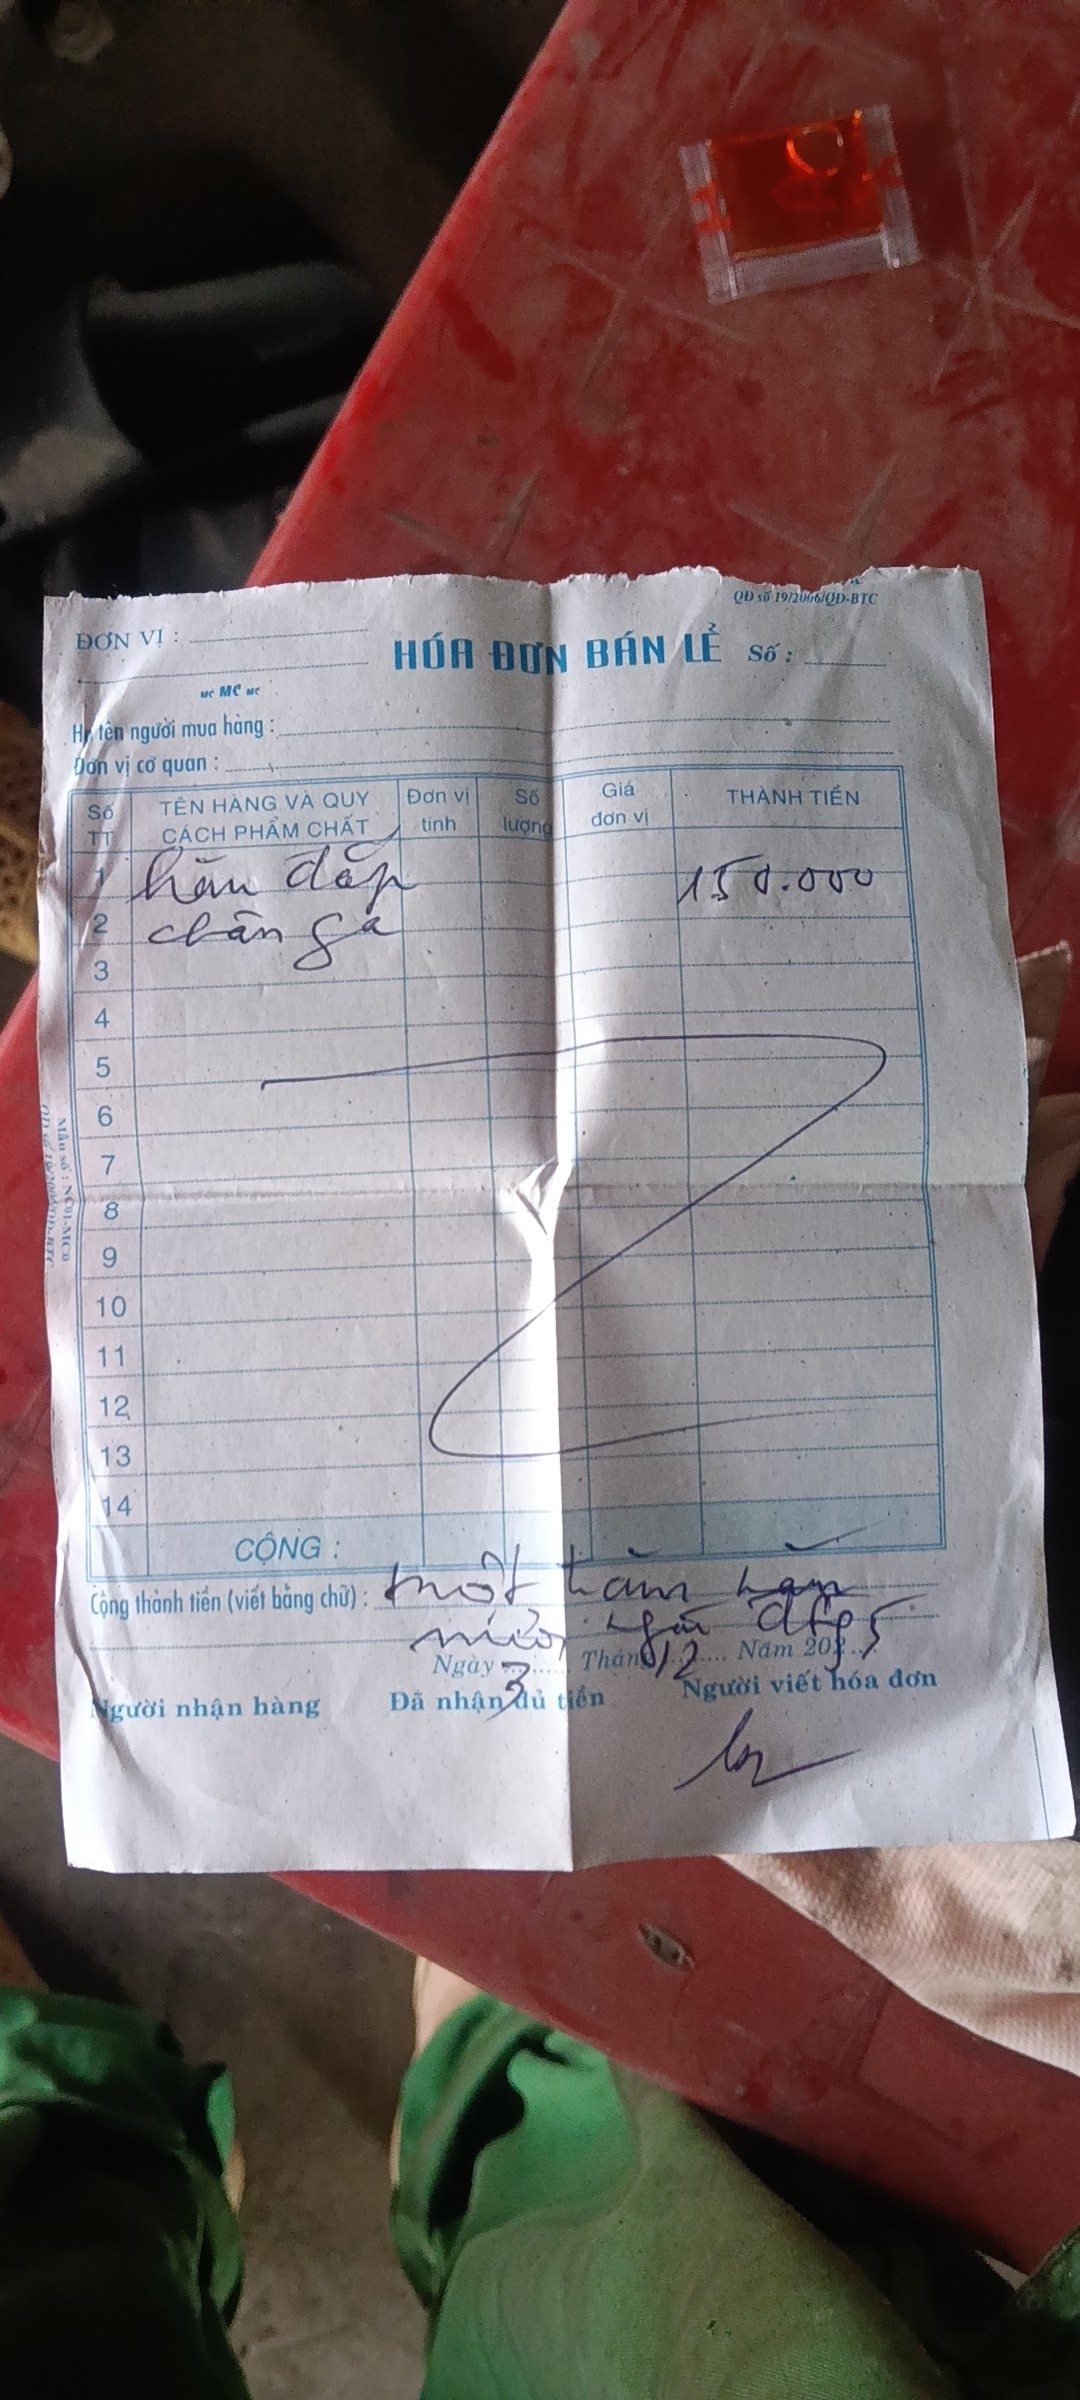 QĐ số 19/2006/QĐ-BTC
ĐƠN VỊ :
HÓA ĐƠN BÁN LẺ Số :
MC MC MC
Họ tên người mua hàng :
Đơn vị cơ quan :
Số TT TÊN HÀNG VÀ QUY CÁCH PHẨM CHẤT Đơn vị tính Số lượng Giá đơn vị THÀNH TIỀN
1 hàn đắp 150.000
2 chân ga
3
4
5
6
7
8
9
10
11
12
13
14
CỘNG :
Cộng thành tiền (viết bằng chữ) : một trăm năm
mươi
Ngày 3 Tháng 12 Năm 2025
Người nhận hàng Đã nhận đủ tiền Người viết hóa đơn
Mẫu số :